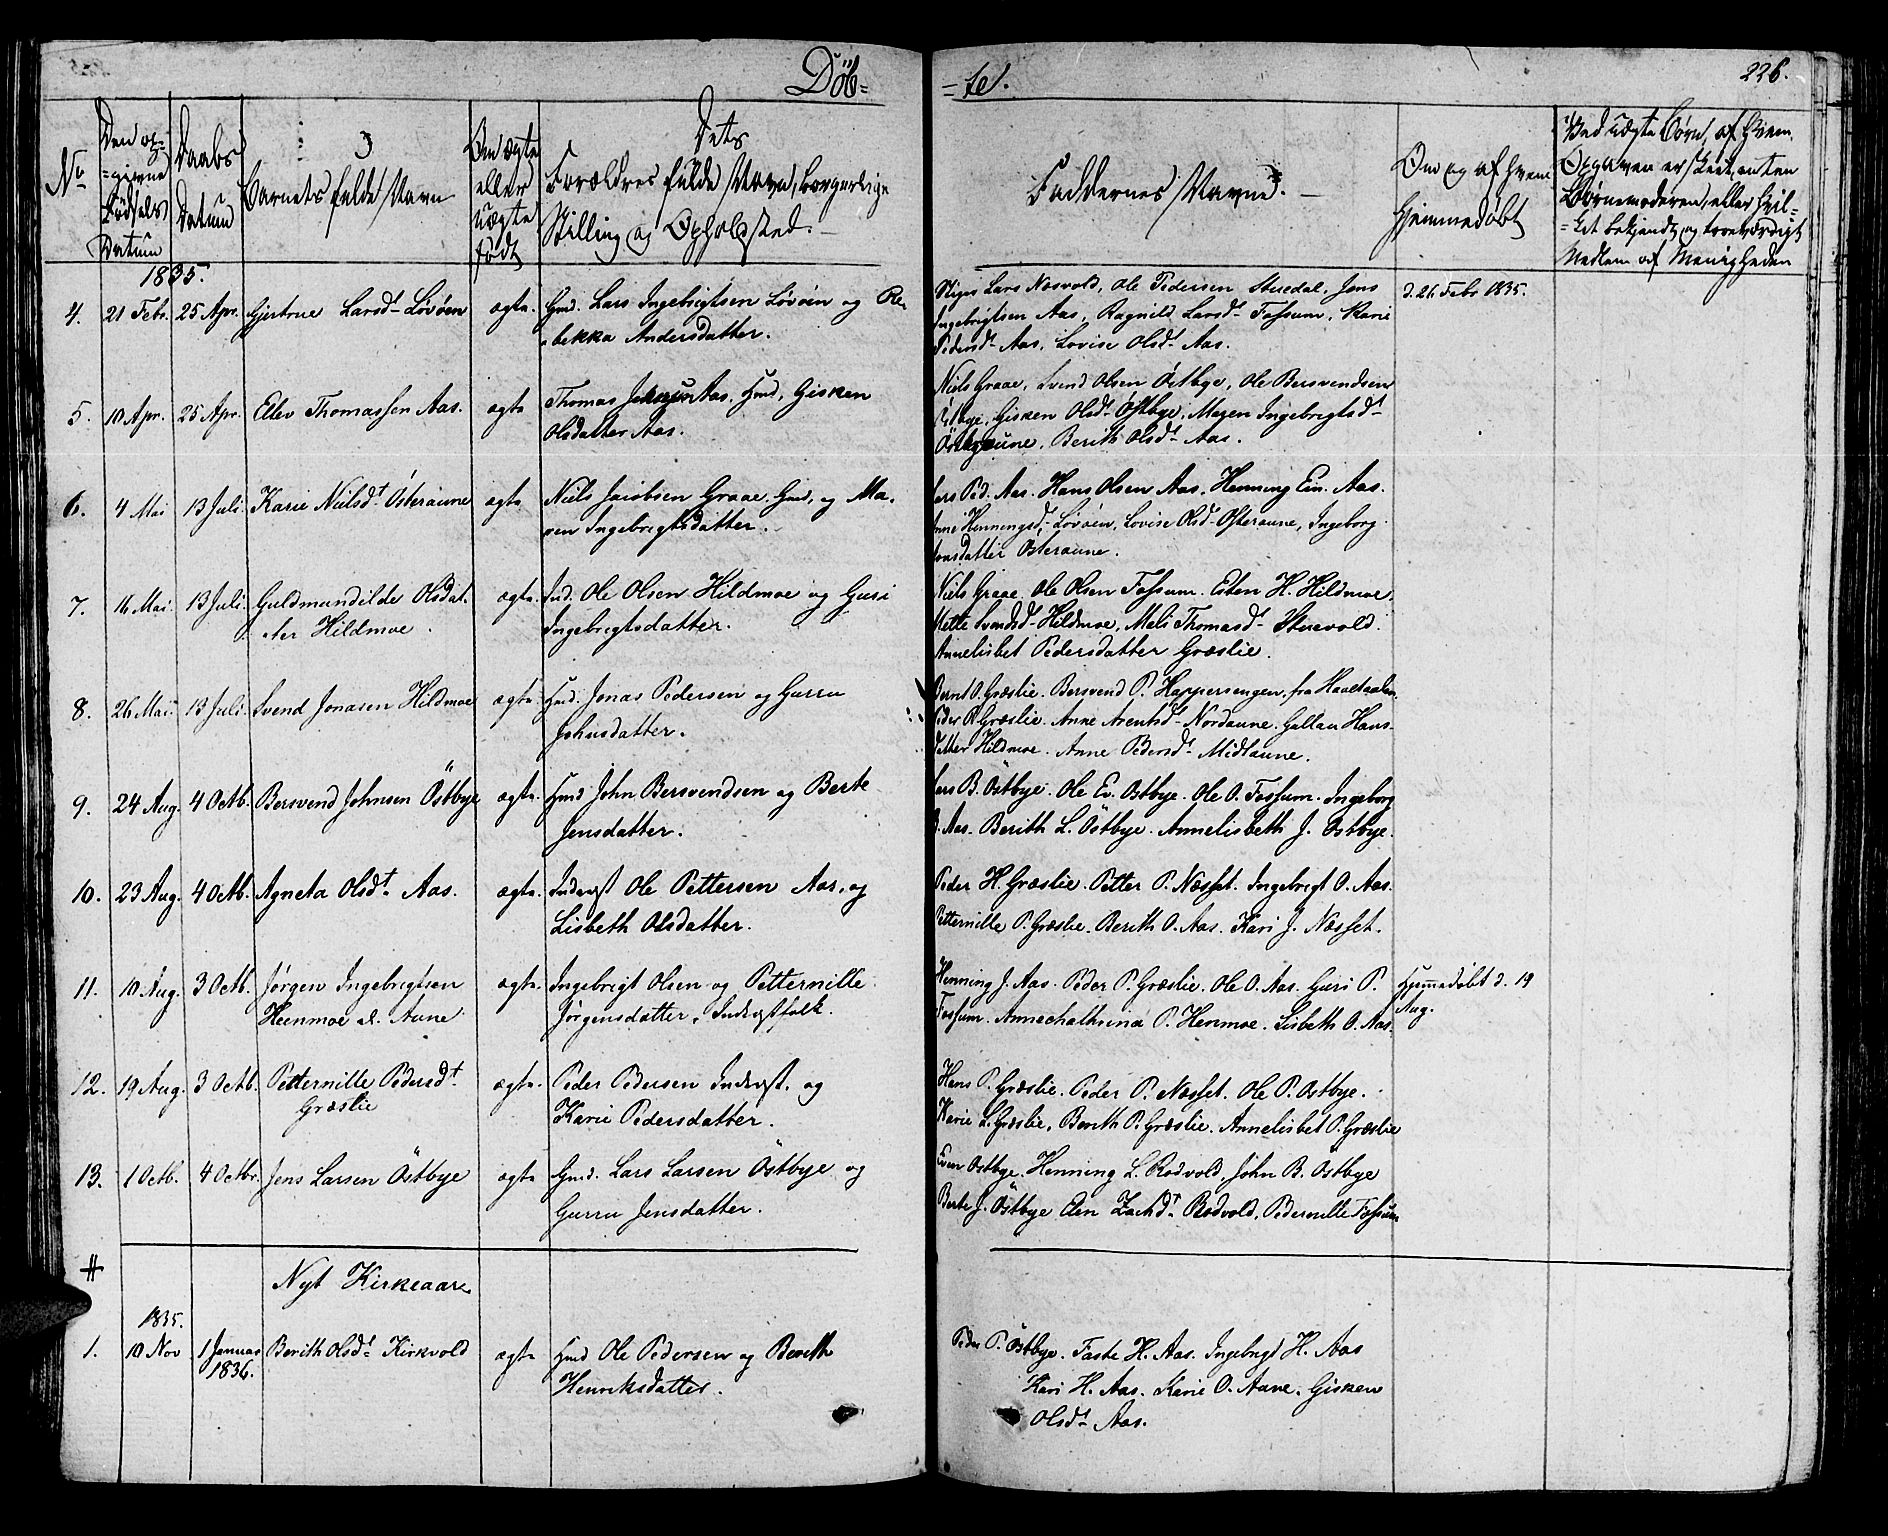 Döb= =te. 226.
No
Den op=
=givne
Fødsels
Datum
Daabs
Datum
Barnets fulde Navn
Om ægte
eller
uægte
født
Dets
Forældres fulde Navn, borgerlige
Stilling og Opholdsted.
Faddernes Navne.
Om og af hvem
Hjemmedøbt
Ved uægte Børn, af hvem
Opgaven er skeet, enten
Børnemoderen, eller hvil=
=ket bekjendt og troværdigt
Medlem af Menigheden
1835.
4. 21 Febr. 25 Apr. Gjertrue Larsdt Løvøen ægte. Gmd. Lars Ingebrigtsen Løvøen og Re
bekka Andersdatter.
Lars Næsvold, Ole Pedersen Stuedal, Jens
Ingebrigtsen Aas, Ragnild Larsdt Fossum, Karie
Pedersdt Aas, Lovise Olsdt Aas.
d. 21. Febr 1835.
5. 10 Apr. 25 Apr. Elev Thomassen Aas. ægte Thomas Aas. Hmd, Gisken
Olsdatter Aas.
Niels Graae, Svend Olsen Östbye, Ole Bersvendsen
Östbye, Gisken Olsdt Östbye, Maren Ingebrigtsdt
Berith Olsdt Aas.
6. 4 Mai 13 Juli. Karie Nielsdt Österaune ægte Niels Jacobsen Graae. Gmd, og Ma.
ren Ingebrigtsdatter.
Lars Ped. Aas. Hans Olsen Aas, Henning Ein. Aas.
Anne Henningsdt Løvøen, Lovise Olsd Osteraune, Ingeborg
Jonsdatter Österaune.
7. 16 Mai. 13 Juli Guldmundilde Olsdat.
ter Hildmoe. ægte. Ind. Ole Olsen Hildmoe og Guri
Ingebrigtsdatter.
Niels Graae. Ole Olsen Fossum. Esten H. Hildmoe
Mette Svendsdt Hildmoe, Meli Thomasdt Stuevold.
Annelisbet Pedersdatter Græslie.
8. 26 Mai 13 Juli Svend Jonasen Hildmoe ægte. Hmd. Jonas Pedersen og Gurru
Johnsdatter.
Bernt O. Græslie. Bersvend P. Happersengen, fra Haaltaalen.
Peder P. Græslie. Anne Arentsdt Nordaune. Gollau Hans-
datter Hildmoe. Anne Pedersdt Midtaune.
9. 24 Aug. 4 Octb. Bersvend Johnsen Östbye ægte. Hmd John Bersvendsen og Berte
Jensdatter.
Lars B. Östbye. Ole Ev. Ostbye. Ole O. Fossum. Ingeborg
Aas. Berith L. Östbye. Annelisbeth J. Östbye.
10. 23 Aug. 4 Octb. Agneta Olsdt Aas. ægte. Inderst Ole Pettersen Aas, og
Lisbeth Olsdatter.
Peder H. Græslie. Petter P. Næsset. Ingebrigt O. Aas.
Petternille P. Græslie. Berith O. Aas. Kari J. Næsset.
11. 10 Aug. 3 Octb. Jørgen Ingebrigtsen
Heenmoe el. Aune ægte. Ingebrigt Olsen og Petternille
Jørgensdatter, Inderstfolk.
Henning J. Aas. Peder P. Græslie. Ole O. Aas. Guri P.
Fossum. Annechathrina P. Henmoe. Lisbeth O. Aas.
Hjemmedøbt d. 19
Aug.
12. 19 Aug. 3 Octb. Petternille Pedersdt
Græslie ægte. Peder Pedersen Inderst. og
Karie Pedersdatter.
Hans P. Græslie. Peder P. Næsset. Ole P. Ostbye.
Karie L. Græslie, Berith P. Græslie. Annelisbet P. Græslie
13. 1 Octb. 4 Octbr. Jens Larsen Östbye ægte Gmd. Lars Larsen Östbye og
Gurru Jensdatter.
Even Ostbye. Henning L. Rodvold, John B. Ostbye
Berte J. Östbye. Elen Zachdt Rodvold, Pedernille Fossum
Nyt Kirkeaar
1835.
1. 10 Nov 1 Januar
1836. Berith Olsdt Kirkvold ægte Hmd Ole Pedersen og Berith
Henriksdatter.
Peder P. Östbye. Faste H. Aas. Ingebrigt H. Aas
Kari H. Aas. Karie O. Aune. Gisken
Olsdt Aas.